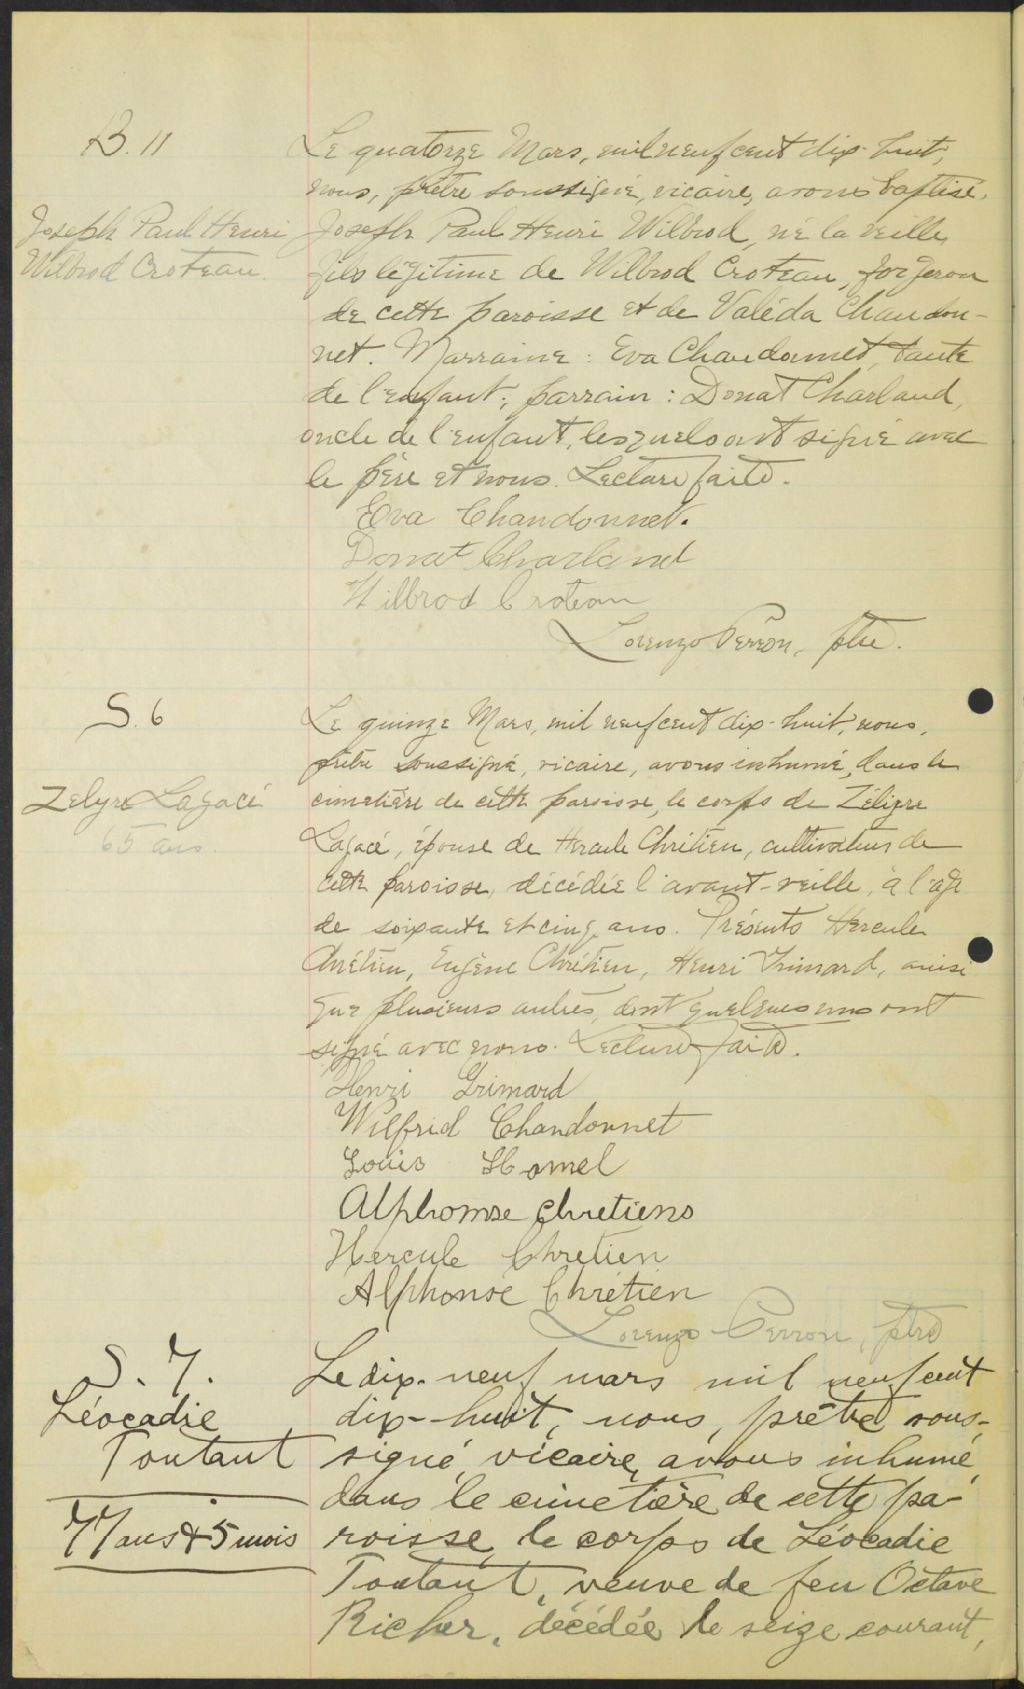 B. 11
Joseph Paul Henri
Wilbrod Croteau.
Le quatorze Mars, mil neuf cent dix-huit,
nous, prêtre soussigné, vicaire, avons baptisé,
Joseph Paul Henri Wilbrod, né la veille,
fils légitime de Wilbrod Croteau, forgeron
de cette paroisse et de Valéda Chandon-
net. Marraine : Eva Chandonnet, tante
de l'enfant; parrain : Donat Charland,
oncle de l'enfant, lesquels ont signé avec
le père et nous. Lecture faite.
Eva Chandonnet.
Donat Charland
Wilbrod Croteau
Lorenzo Perron, ptre.
S. 6
Zelyre Lagacé
65 ans.
Le quinze Mars, mil neuf cent dix-huit, nous,
prêtre soussigné, vicaire, avons inhumé, dans le
cimetière de cette paroisse, le corps de Zélyre
Lagacé, épouse de Hercule Chrétien, cultivateur de
cette paroisse, décédée l'avant-veille, à l'âge
de soixante et cinq ans. Présents Hercule
Chrétien, Eugène Chrétien, Henri Grimard, ainsi
que plusieurs autres, dont quelques uns ont
signé avec nous. Lecture faite.
Henri Grimard
Wilfrid Chandonnet
Louis Hamel
Alphonse chretiens
Hercule Chretien
Alphonse Chrétien
Lorenzo Perron, ptre
S. 7.
Léocadie
Toutant
77 ans & 5 mois
Le dix-neuf mars mil neuf cent
dix-huit, nous, prêtre sous-
signé, vicaire, avons inhumé
dans le cimetière de cette pa-
roisse, le corps de Léocadie
Toutant, veuve de feu Octave
Richer, décédée le seize courant,